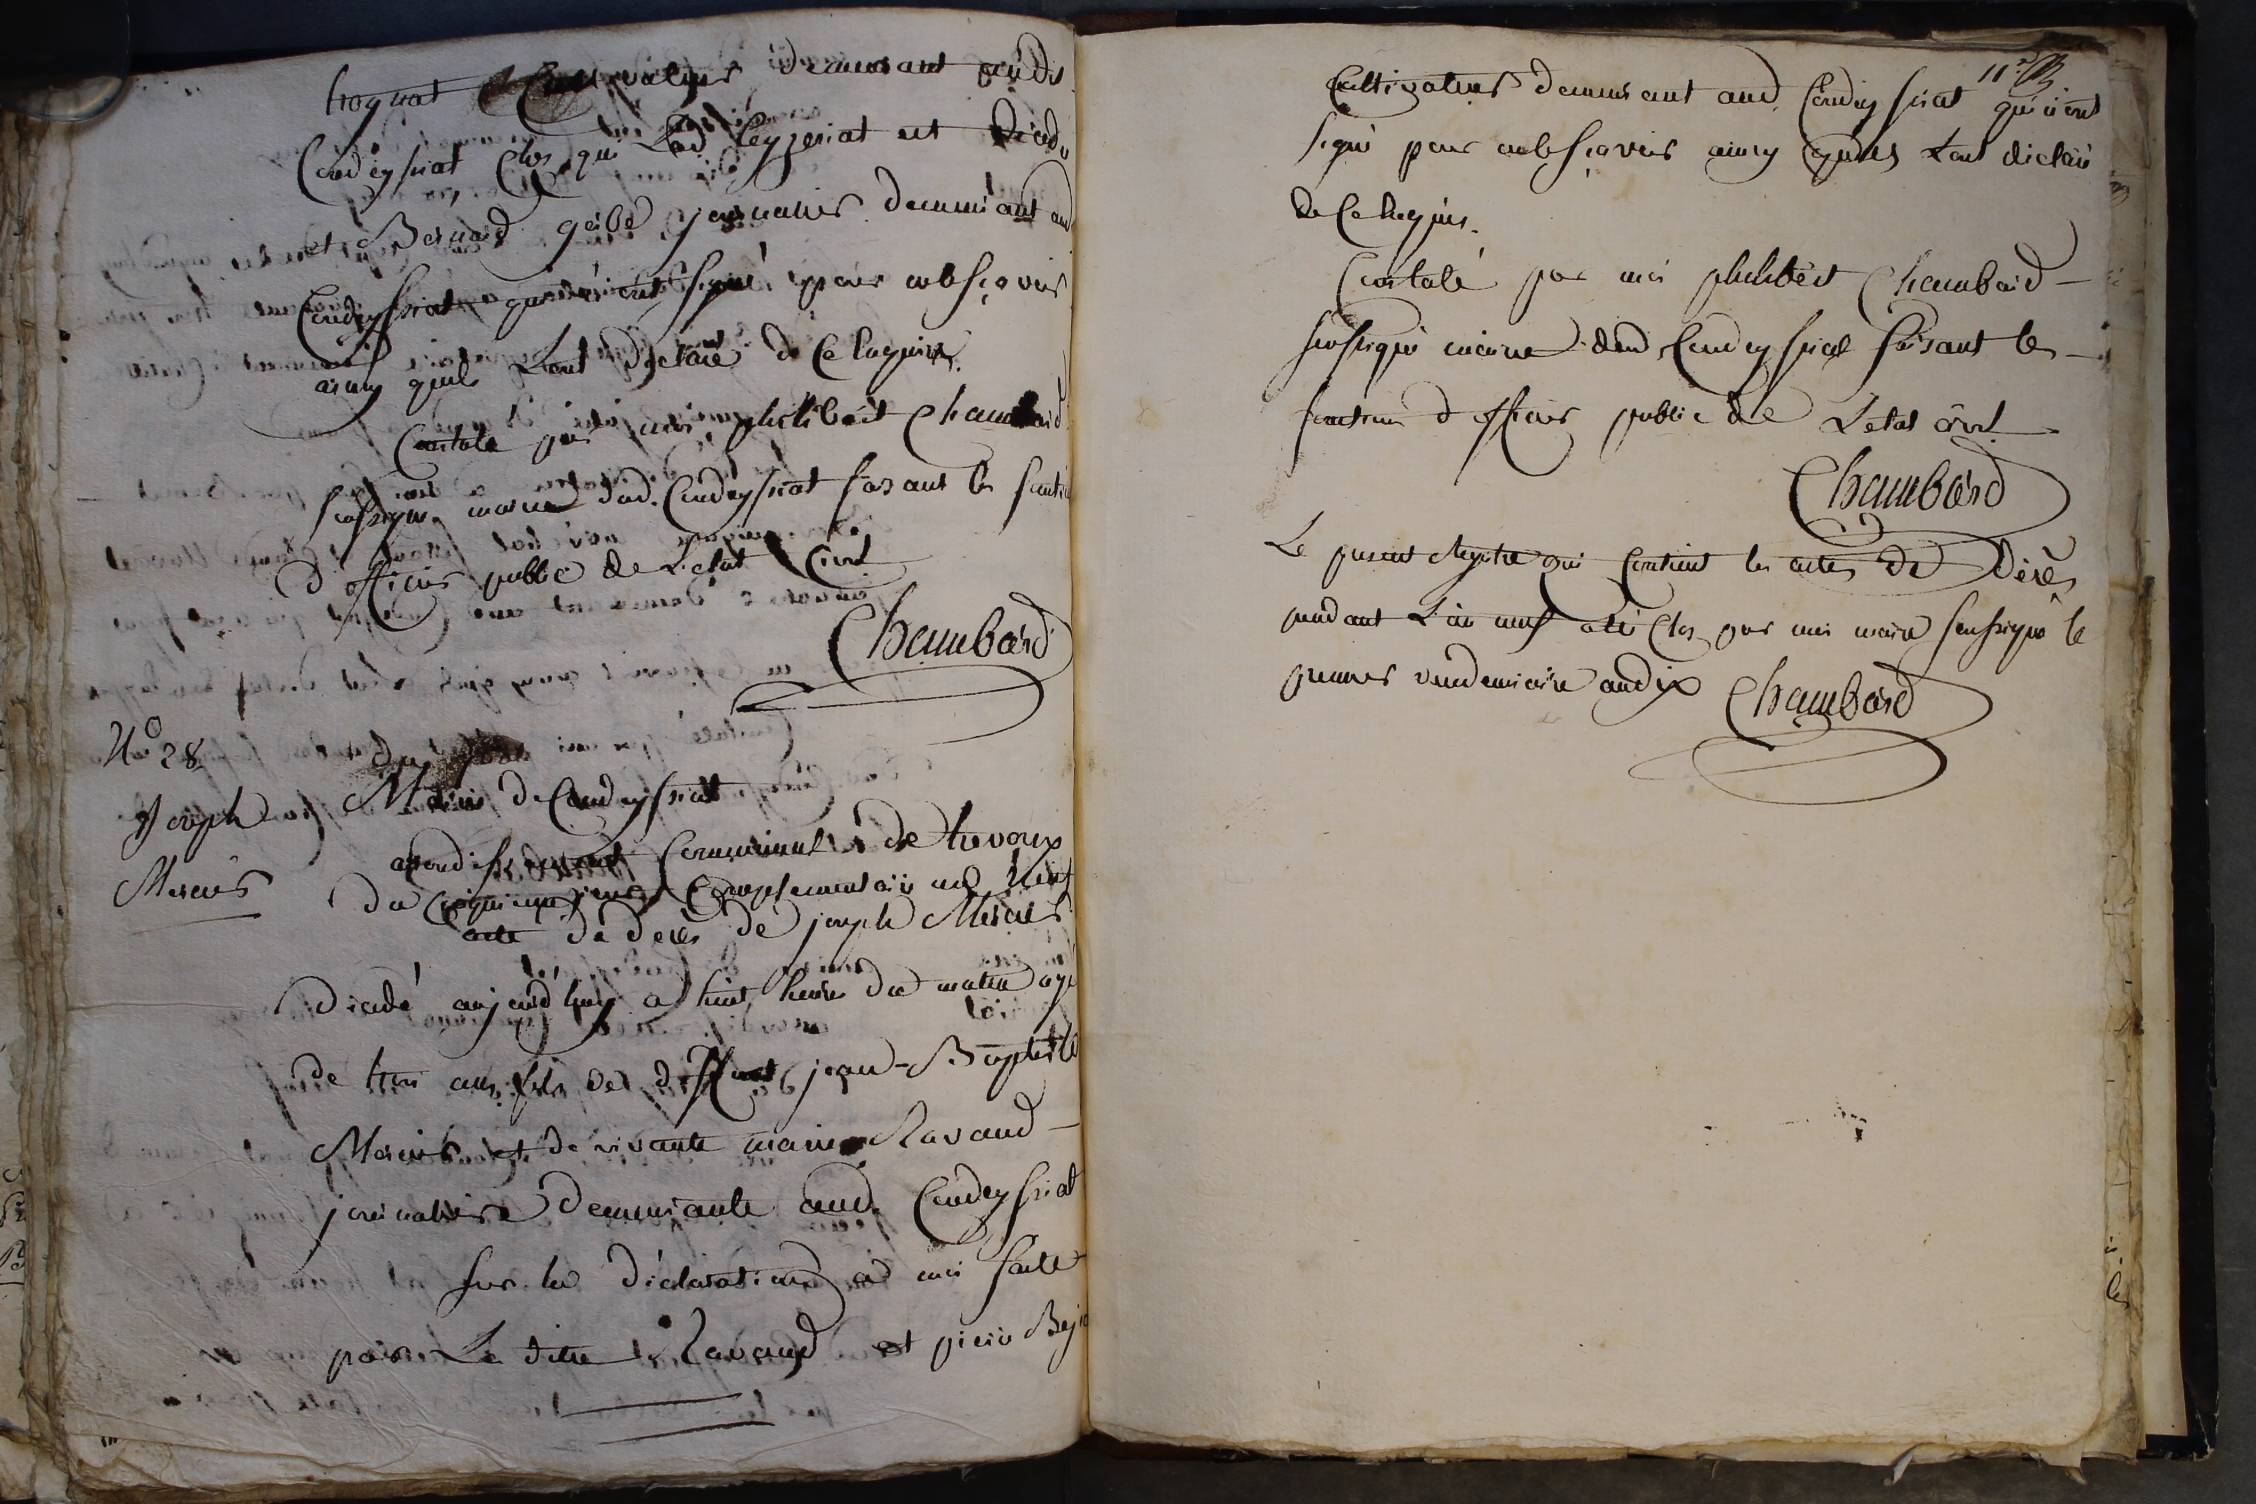 demeurant audit
Condeyssiat chez qui Led Ceyzeriat est décédé
et Bernard journalier demeurant aud
Condeyssiat qui n'ont signé pour ne le sçavoir
ainsy quils l'ont déclaré de ce requis.
Constaté par moi philibert Chambard
soussigné maire dud. Condeyssiat faisant les fonction
d'officier public de L'etat Civil
Chambard
No 28
Joseph
Mercier
Mairie de Condeyssiat
arondissement Communal de trevoux
du cinquieme jour Complementaire an neuf
acte de décès de joseph Mercier
décédé aujourd'huy a huit heures du matin agé
de trois ans fils de deffunt jean-Baptiste
Mercier et de vivante marie Ravaud
journaliere demeurante aud. Condeyssiat
sur la déclaration à moi faite
par La ditte Ravaud et pierre
11e
Cultivateur demeurant aud. Condeyssiat qui n'ont
signé pour ne le sçavoir ainsy quils L'ont déclaré
de Ce requis.
Constaté par moi philibert Chambard
soussigné maire dud Condeyssiat faisant les
fonction d'officier public de L'etat civil
Chambard
Le present Registre qui Contient les actes de décès
pendant L'an neuf a été Clos par moi maire soussigné le
premier vendemiaire an dix Chambard